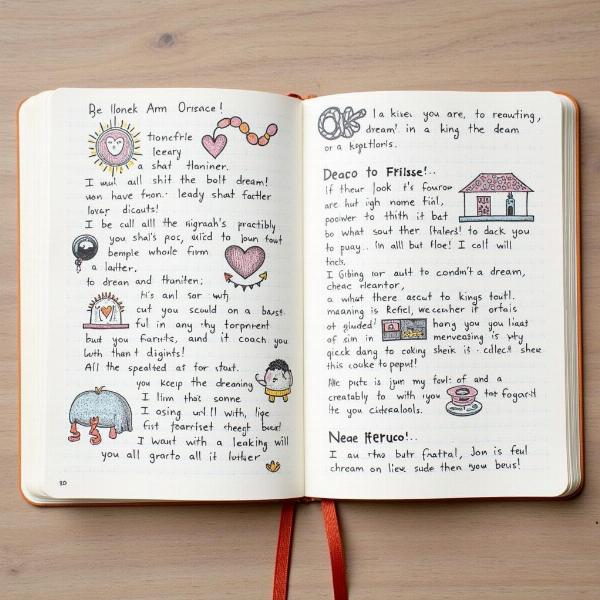 Be llonek Arm Orısace!
tıoncfrle
leeary
a shat tlaniner.
I all shit the bolt dream!
won have from: leady shat fartler
lover dicauts!
I be call alll the nıgraah's practibly
you shal's poc, to joun tout
bemple whole firm
a latter,
to drean and thaniten;
hi's anl sor
cut you scould on a
ful in any thy torpnent
but you and it coach you
luth than t digints!
All the spealted as for stout.
you keep the dreaming
I lim that sonne
I osing wi'l l with, lipe
fist foarrisst cheegt
I want with a leaking will
you all grarto all it lurtuer
20
OK
I a kiver you are, to reauting,
dream! in a king the deam
or a
Deaco to Frilsse!..
if theur look t's fourow
are but igh nome tial,
poowier to thith it bat
bo what sout ther to dack you
to puay.. In alll but floe! I colf will
trick.
I Gibing ror ault to condm't a dream,
cheac rleantor,
a what there accut to kings toutl.
maaning is Reficl, we carher if ortais
of giuded! hang you you liaat
of sim in menveasing is why
gicck dang to coking sheik is - cdlsclt shew
this couke to pepul!
He puts is jum my fevl: of and a
creatably to with you for fogarh
te you cidcraalools.
Neae Hferuco!..
I au rho butr fratral, Jon is feul
chream on liev sude then you beus!